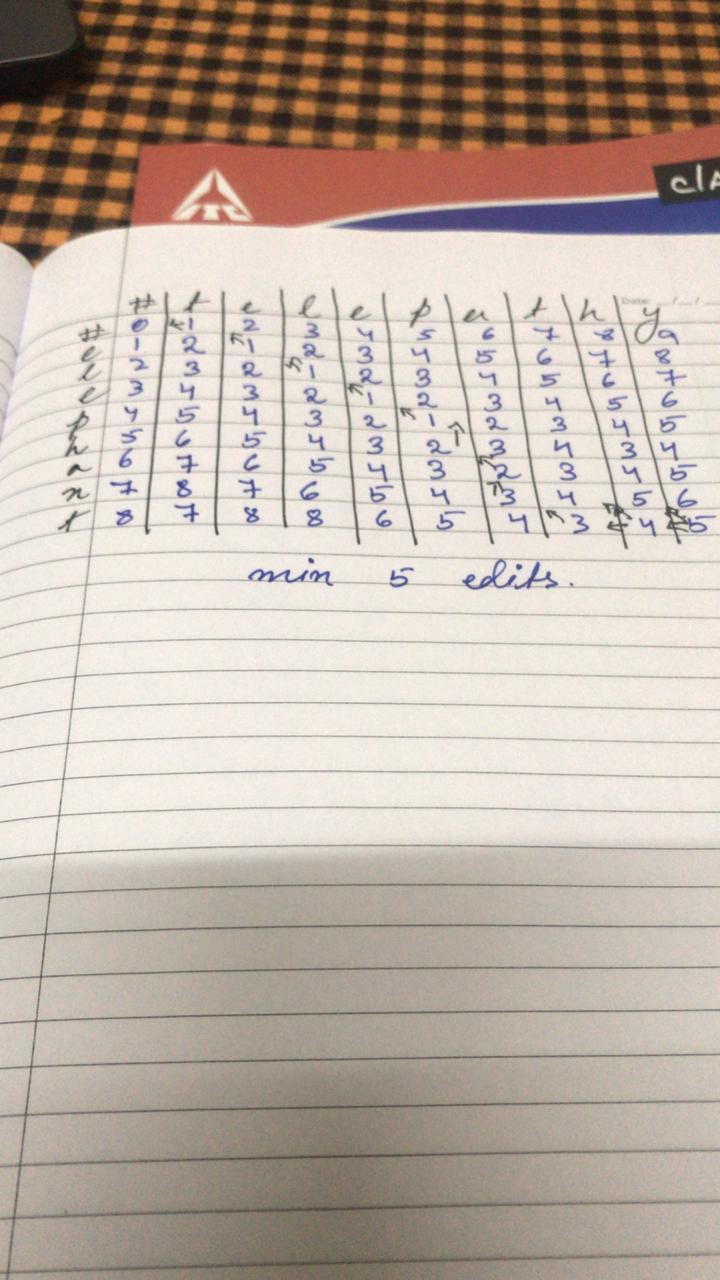 ITC
clA
Date: __/__/__
# t e l e p a t h y
# 0 1 2 3 4 5 6 7 8 9
e 1 2 1 2 3 4 5 6 7 8
l 2 3 2 1 2 3 4 5 6 7
e 3 4 3 2 1 2 3 4 5 6
p 4 5 4 3 2 1 2 3 4 5
h 5 6 5 4 3 2 3 4 3 4
a 6 7 6 5 4 3 2 3 4 5
n 7 8 7 6 5 4 3 4 5 6
t 8 7 8 8 6 5 4 3 4 5
min 5 edits.